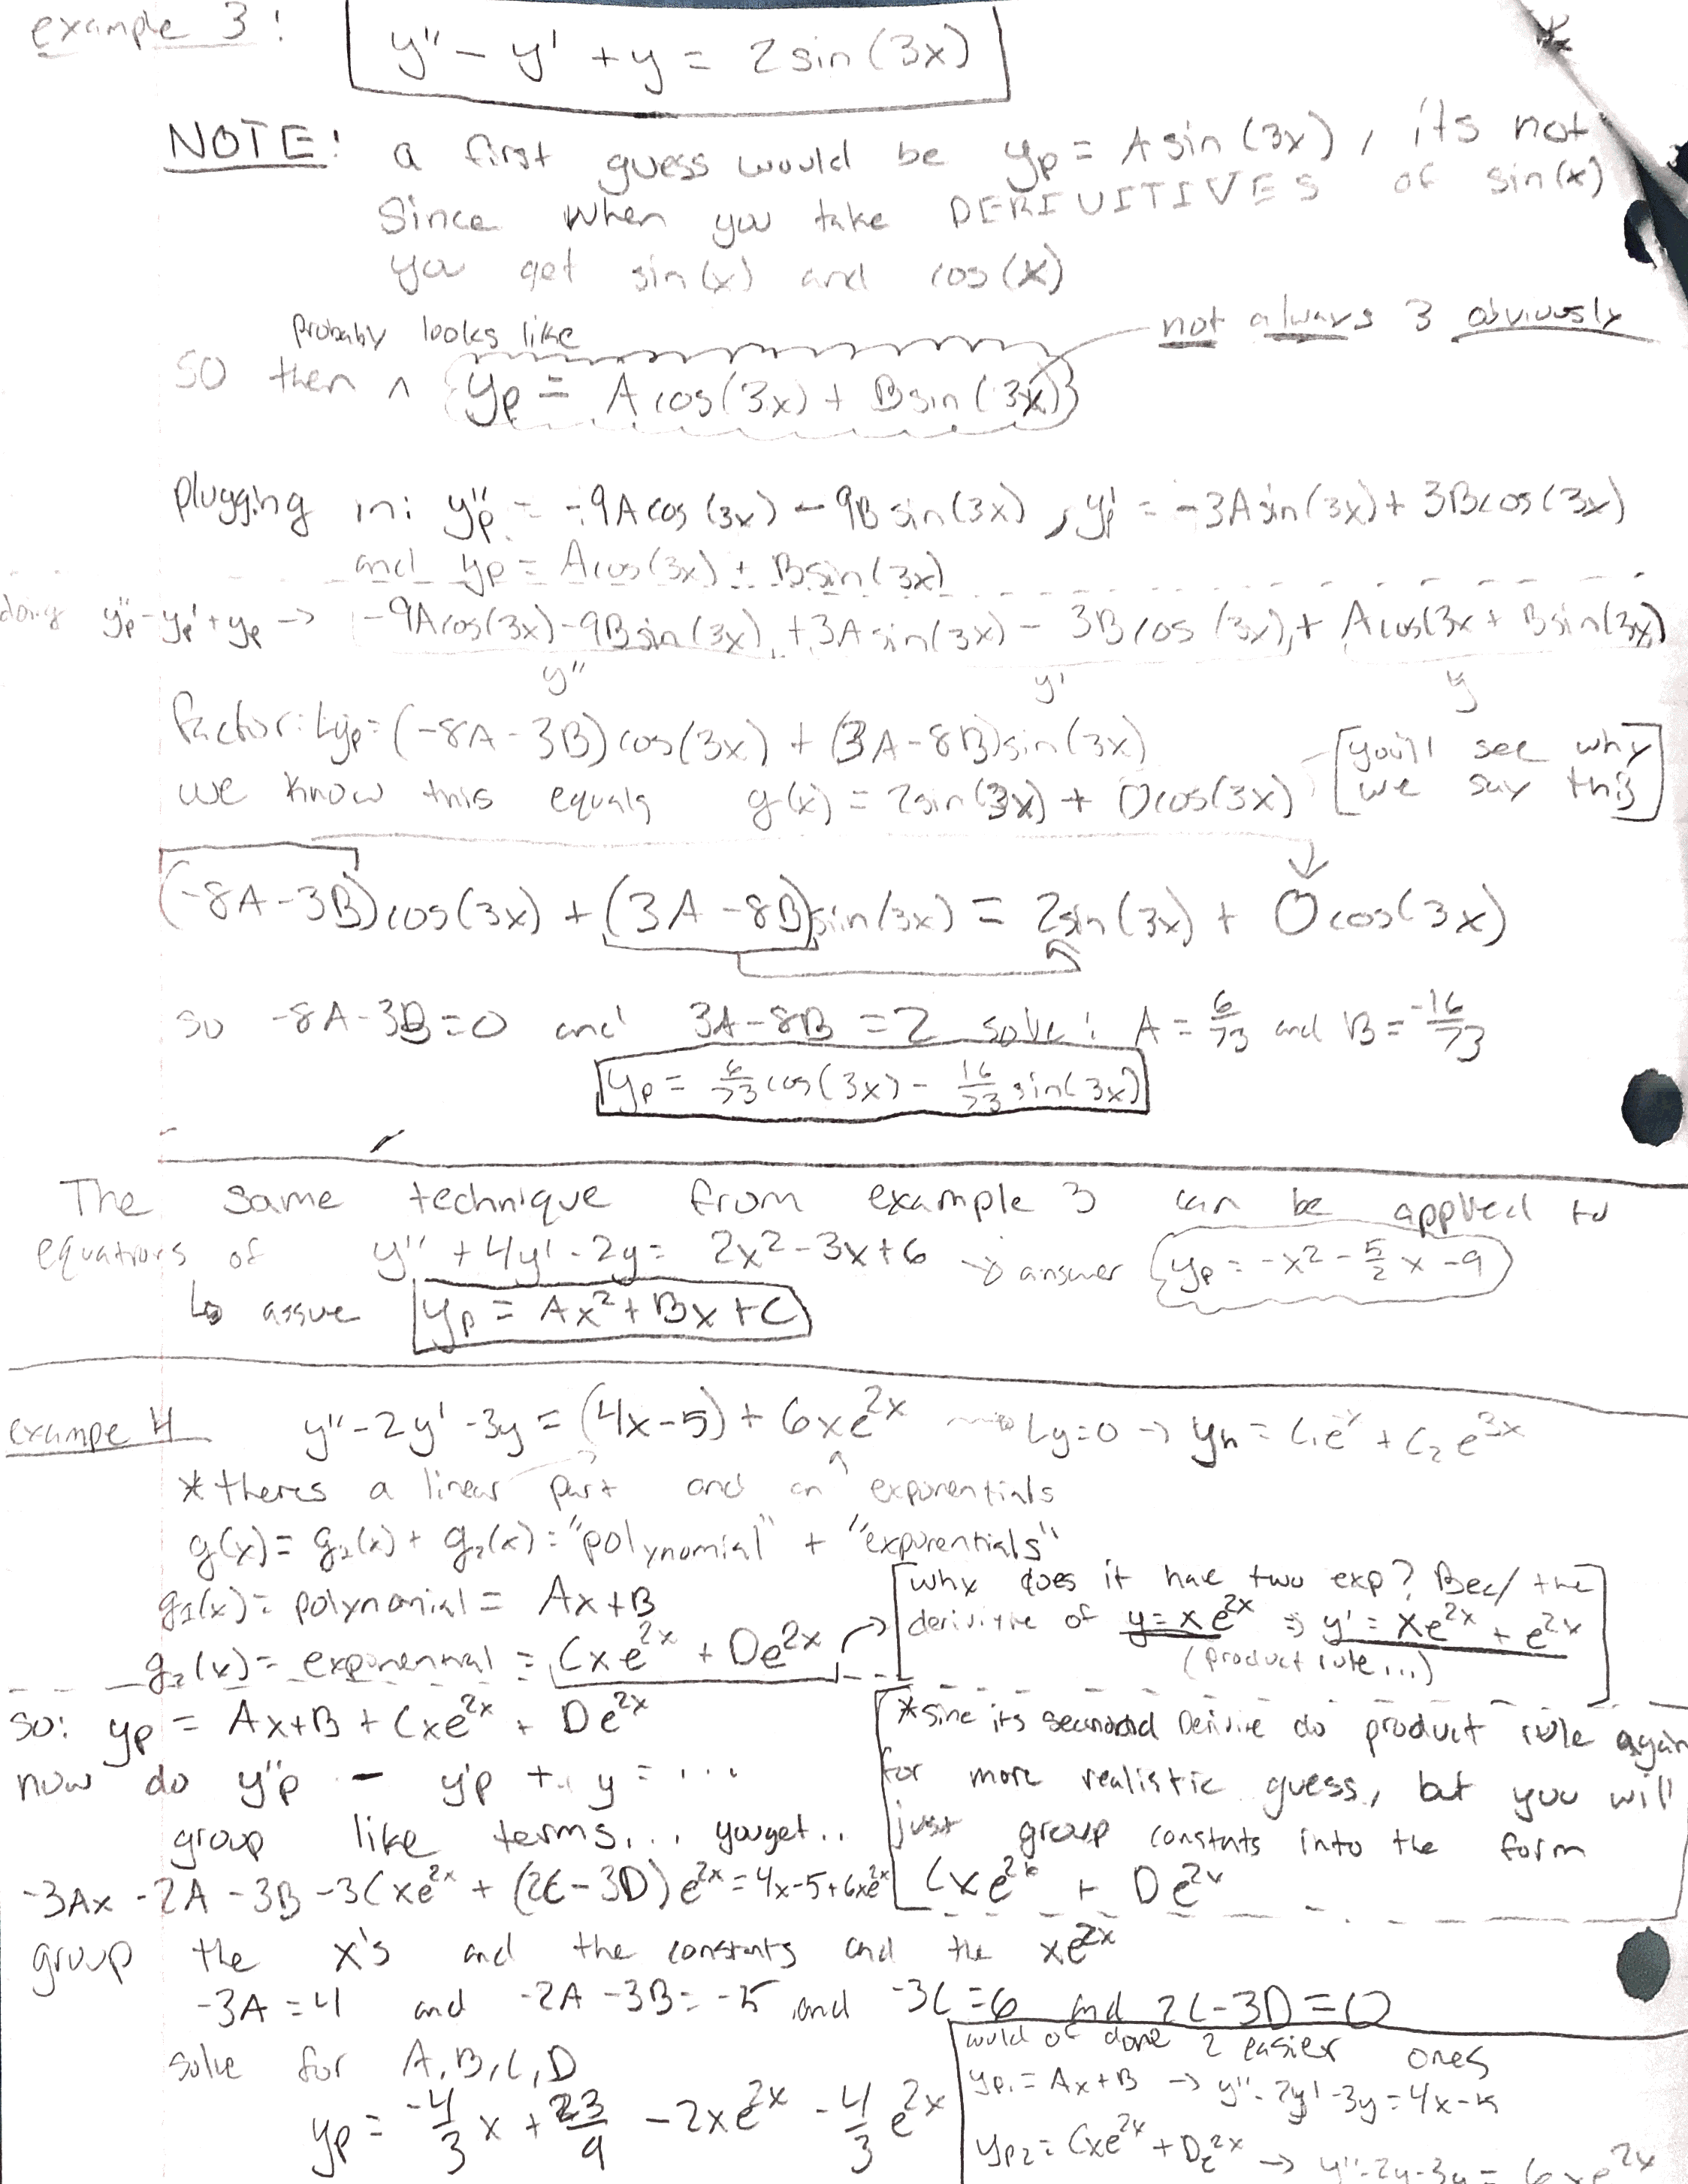 example 3!
y'' - y' + y = 2sin(3x)
NOTE! a first guess would be yp = Asin(3x), its not
Since when you take DERIVITIVES of sin(x)
you get sin(x) and cos(x)
probably looks like
not always 3 obviously
SO then ^ yp = Acos(3x) + Bsin(3x)
plugging in: y''p = -9Acos(3x) - 9Bsin(3x), y'p = -3Asin(3x) + 3Bcos(3x)
and yp = Acos(3x) + Bsin(3x)
doing y''p - y'p + yp → -9Acos(3x) - 9Bsin(3x) + 3Asin(3x) - 3Bcos(3x) + Acos(3x + Bsin(3x)
y'' y' y
factor: Lyp = (-8A - 3B)cos(3x) + (3A - 8B)sin(3x)
[you'll see why
we know this equals g(x) = 2sin(3x) + 0cos(3x)
we say this]
(-8A - 3B)cos(3x) + (3A - 8B)sin(3x) = 2sin(3x) + 0cos(3x)
so -8A - 3B = 0 and 3A - 8B = 2 solve: A = 6/73 and B = -16/73
yp = 6/73 cos(3x) - 16/73 sin(3x)
The same technique from example 3 can be applied to
equations of y'' + 4y' - 2y = 2x² - 3x + 6 → answer yp = -x² - 5/2 x - 9
↳ assue yp = Ax² + Bx + C
exampe 4 y'' - 2y' - 3y = (4x - 5) + 6xe^2x → Ly = 0 → yh = C₁e^x + C₂e^3x
* theres a linear part and an exponentials
g(x) = g₂(x) + g₂(x) = "polynomial" + "exponentials"
g₁(x) = polynomial = Ax + B
g₂(x) = exponential = Cxe^2x + De^2x
why does it have two exp? Bec/ the
derivitive of y = xe^2x ⇒ y' = xe^2x + e^2x
(product rule...)
so: yp = Ax + B + Cxe^2x + De^2x
now do y''p - y'p + y = ...
group like terms... you get..
*sine its secnond Derivive do product rule again
for more realistic guess, but you will
just group constnts into the form
Cxe^2x + De^2x
-3Ax - 2A - 3B - 3Cxe^2x + (2C - 3D)e^2x = 4x - 5 + 6xe^2x
group the x's and the constants and the xe^2x
-3A = 4 and -2A - 3B = -5 and -3C = 6 and 2C - 3D = 0
solve for A, B, C, D
yp = -4/3 x + 23/9 - 2xe^2x - 4/3 e^2x
would of done 2 easier ones
yp₁ = Ax + B → y'' - 2y' - 3y = 4x - 5
yp2 = Cxe^2x + De^2x → y'' - 2y - 3y = 6xe^2x